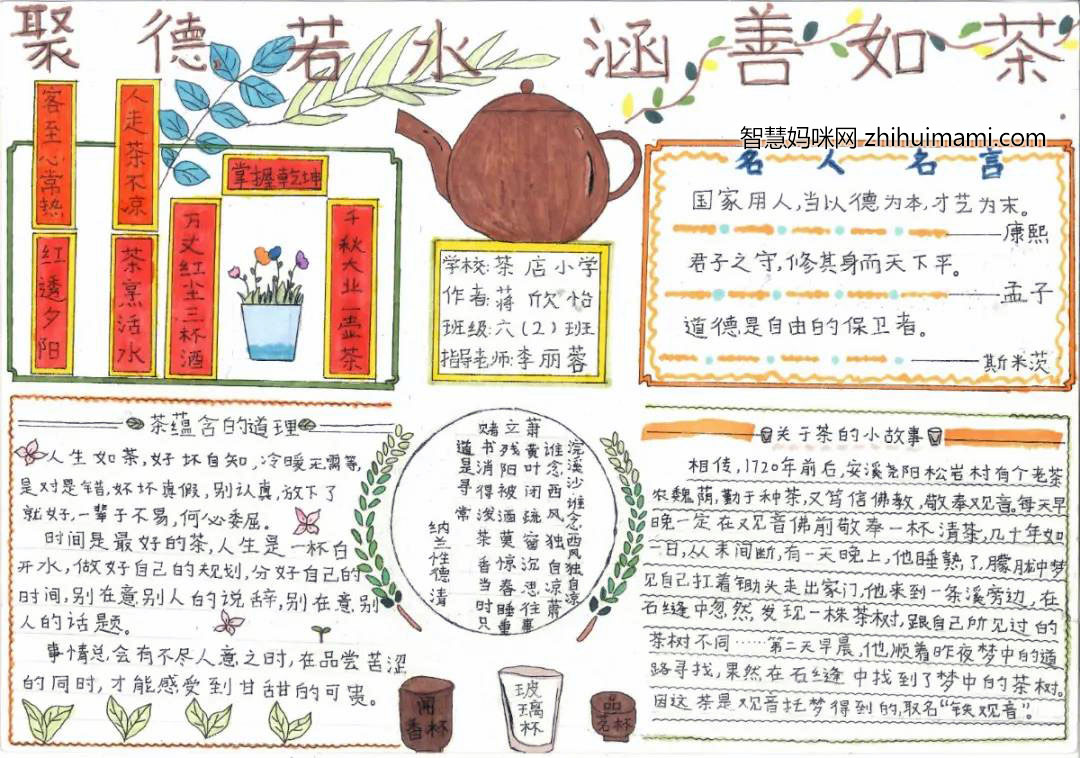 聚德若水 涵善如茶
智慧妈咪网 zhihuimami.com
客至心常热
人走茶不凉
红透夕阳
茶烹活水
掌握乾坤
万丈红尘三杯酒
千秋大业一壶茶
学校:茶店小学
作者:蒋欣怡
班级:六(2)班
指导老师:李丽蓉
名人名言
国家用人,当以德为本,才艺为末。
——康熙
君子之守,修其身而天下平。
——孟子
道德是自由的保卫者。
——斯米茨
茶蕴含的道理
人生如茶,好坏自知,冷暖无需等,
是对是错,好坏真假,别认真,放下了
就好,一辈子不易,何必委屈。
时间是最好的茶,人生是一杯白
开水,做好自己的规划,分好自己的
时间,别在意别人的说辞,别在意别
人的话题。
事情总会有不尽人意之时,在品尝苦涩
的同时,才能感受到甘甜的可贵。
浣溪沙谁念西风独自凉
谁念西风独自凉萧
萧黄叶闭疏窗沉思往事
立残阳被酒莫惊春睡重
赌书消得泼茶香当时只
道是寻常
纳兰性德清
闻香杯
玻璃杯
品茗杯
关于茶的小故事
相传,1720年前后,安溪尧阳松岩村有个老茶
农魏荫,勤于种茶,又笃信佛教,敬奉观音。每天早
晚一定在观音佛前敬奉一杯清茶,几十年如
一日,从未间断,有一天晚上,他睡熟了,朦胧中梦
见自己扛着锄头走出家门,他来到一条溪旁边,在
石缝中忽然发现一株茶树,跟自己所见过的
茶树不同……第二天早晨,他顺着昨夜梦中的道
路寻找,果然在石缝中找到了梦中的茶树。
因这茶是观音托梦得到的,取名“铁观音”。